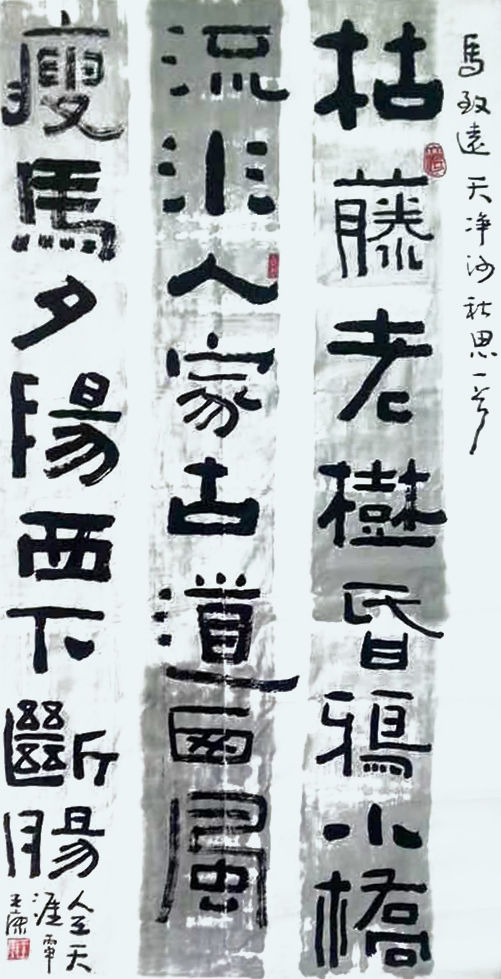 馬致遠天净沙秋思一首
枯藤老樹昏鴉小橋
流水人家古道西風
瘦馬夕陽西下斷腸
人在天
涯